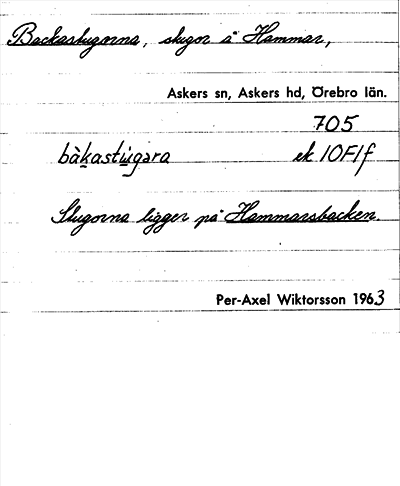 Backastugorna, stugor å Hammar,
Askers sn, Askers hd, Örebro län.
705
bàkastùgəra ek 10F1f
Stugorna ligger på Hammarsbacken.
Per-Axel Wiktorsson 1963